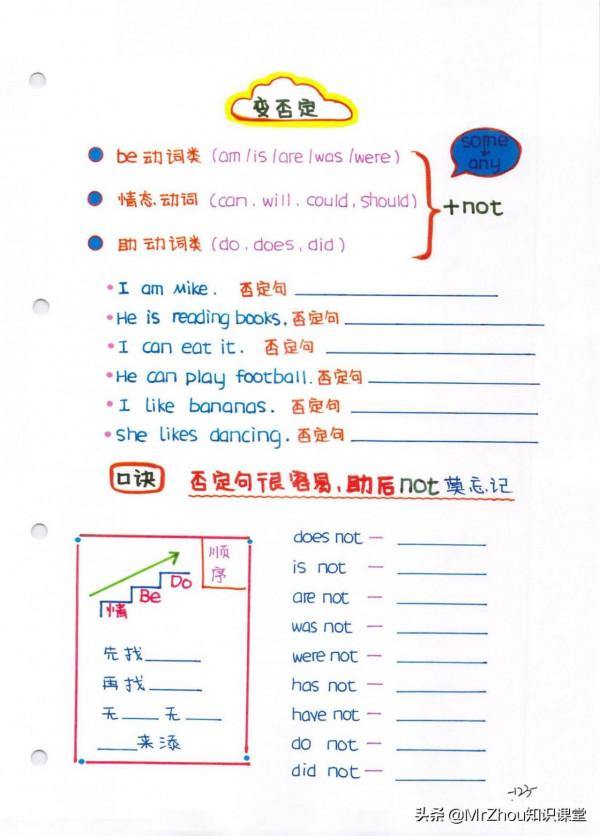 变否定
be 动词类 (am / is / are / was / were)
some
↓
any
情态动词 (can、will、could、should)
+not
助动词类 (do、does、did)
I am Mike. 否定句
He is reading books. 否定句
I can eat it. 否定句
He can play football. 否定句
I like bananas. 否定句
She likes dancing. 否定句
口诀 否定句很容易,助后not莫忘记
顺序
Do
Be
情
先找
再找
无 无
来添
does not —
is not —
are not —
was not —
were not —
has not —
have not —
do not —
did not —
-123-
头条 @MrZhou知识课堂